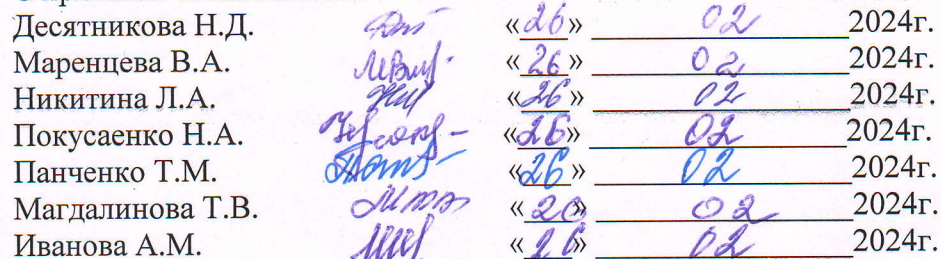 Десятникова Н.Д. «26» 02 2024г.
Маренцева В.А. «26» 02 2024г.
Никитина Л.А. «26» 02 2024г.
Покусаенко Н.А. «26» 02 2024г.
Панченко Т.М. «26» 02 2024г.
Магдалинова Т.В. «20» 02 2024г.
Иванова А.М. «26» 02 2024г.